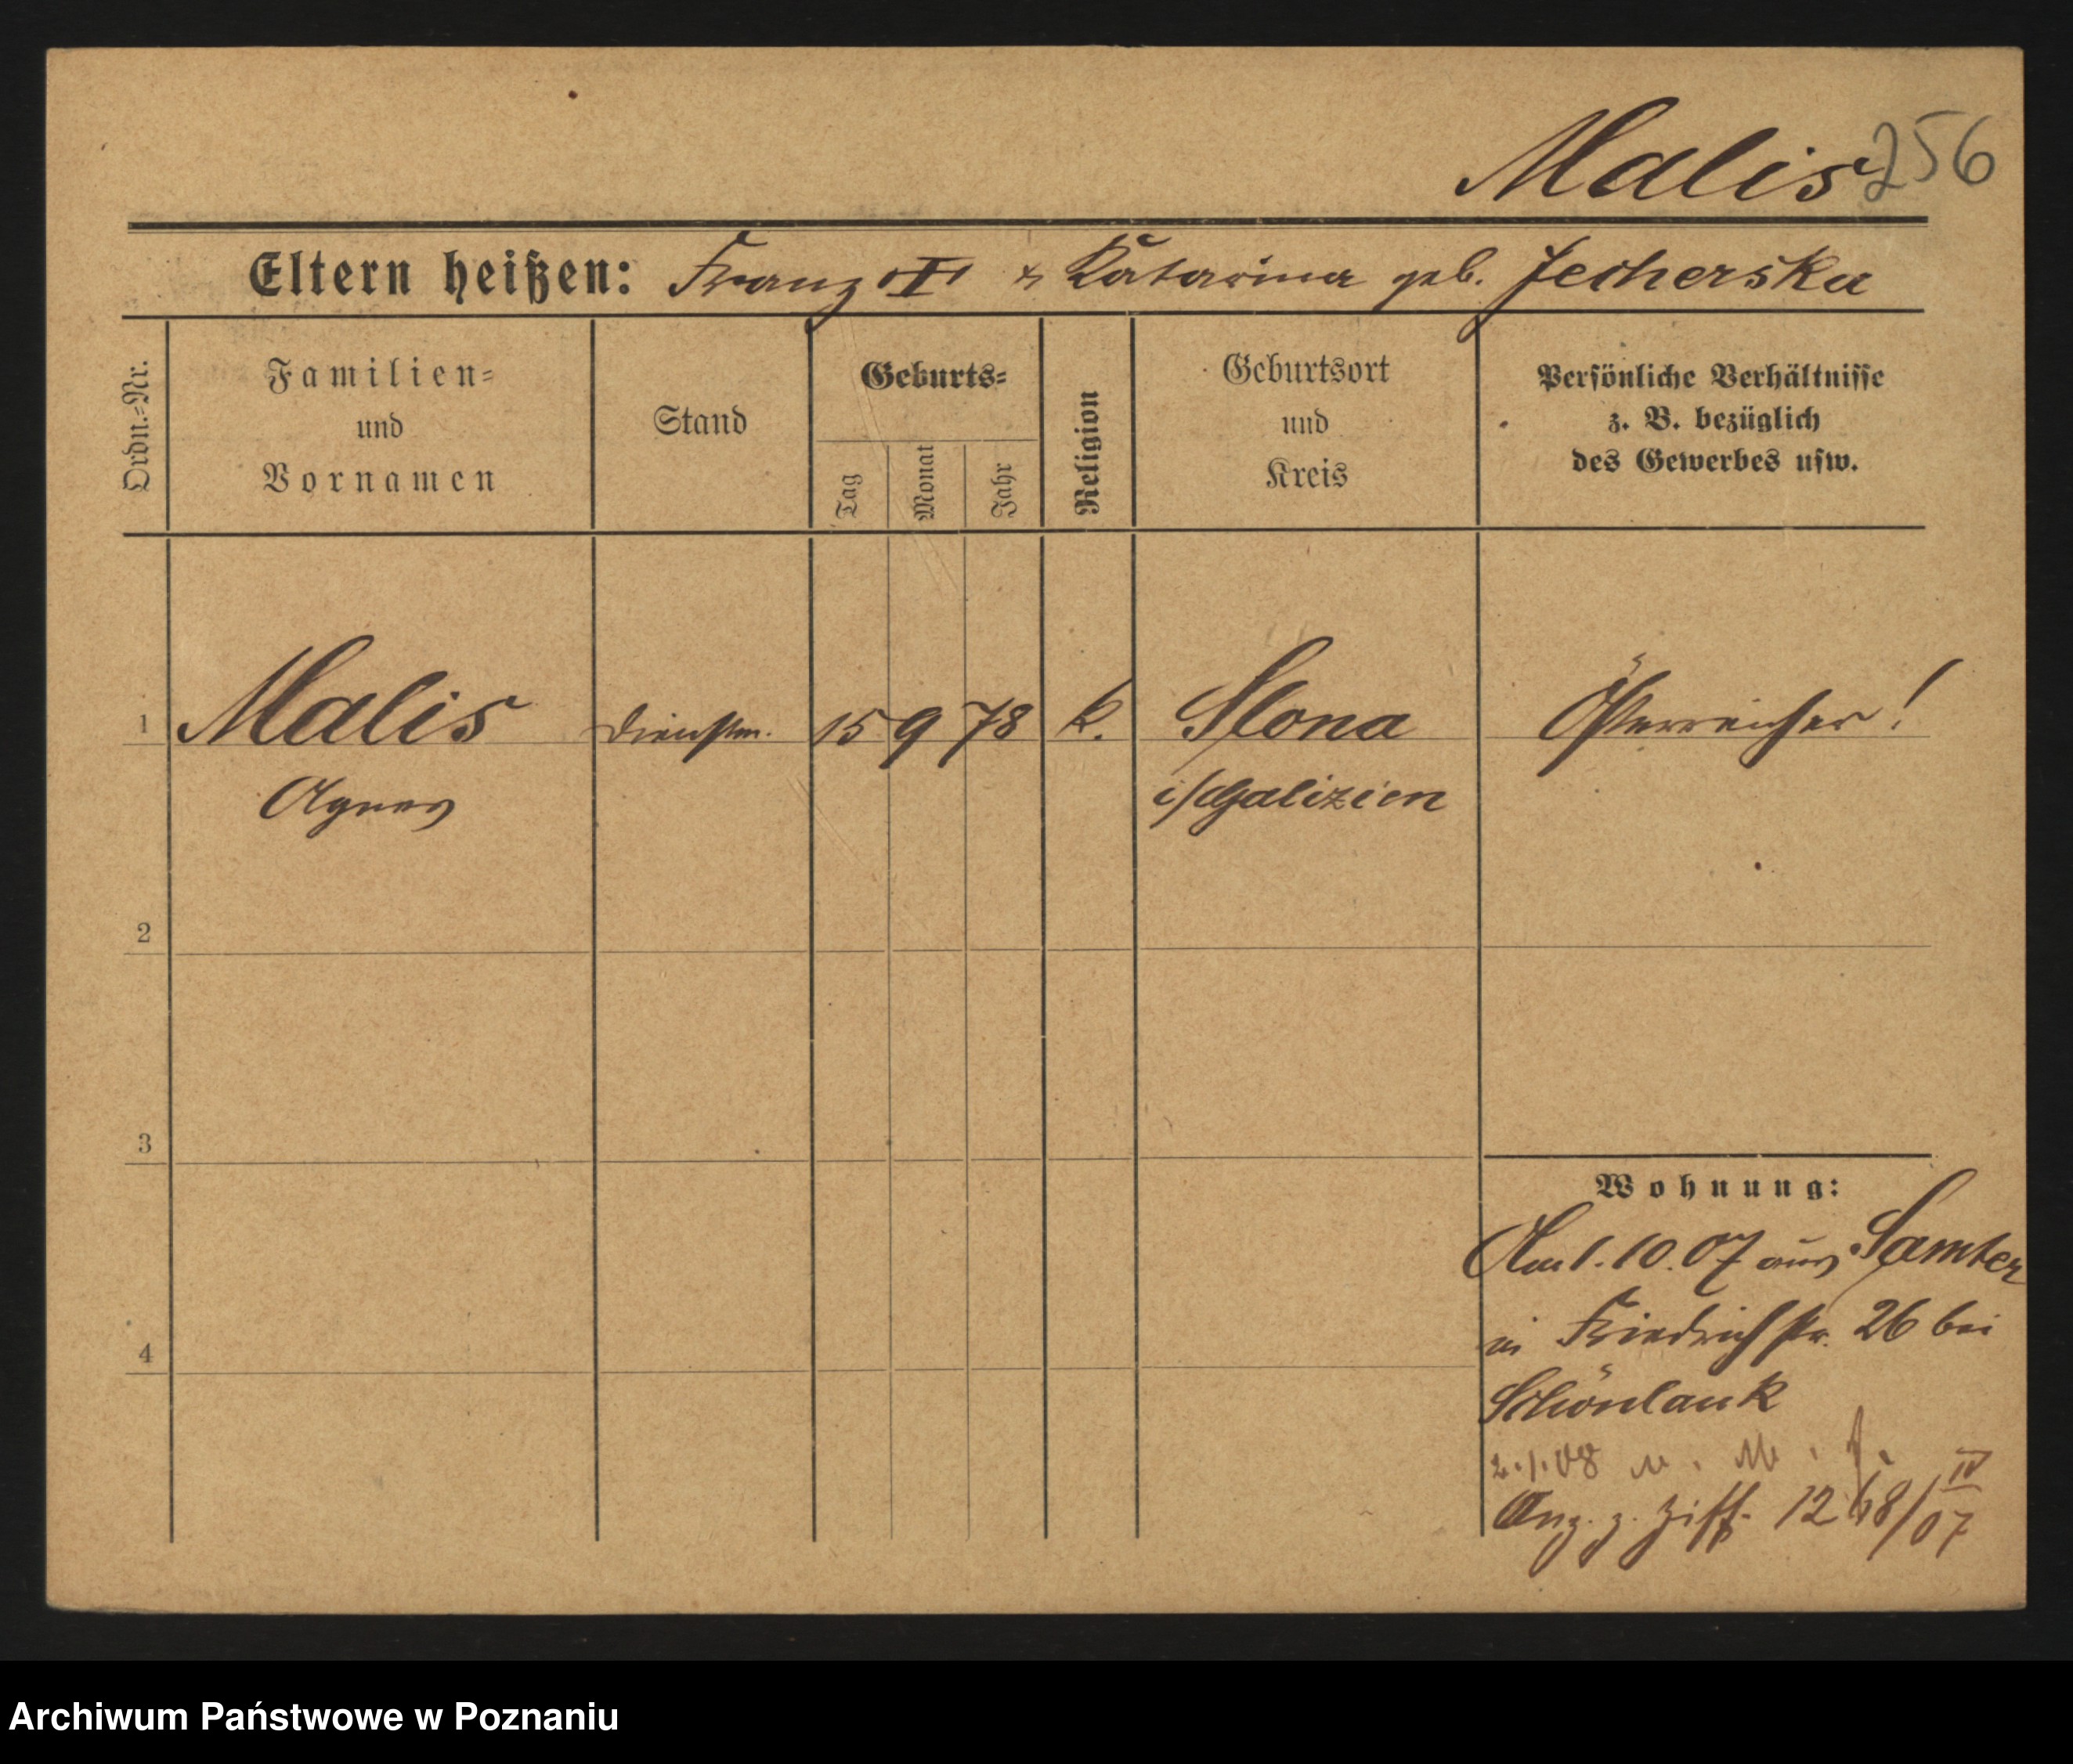 Malis 256
Eltern heißen: Franz M & Katarina geb. Jecherska
Ordn.=Nr.
Familien=
und
Vornamen
Stand
Geburts=
Tag
Monat
Jahr
Religion
Geburtsort
und
Kreis
Persönliche Verhältnisse
z. B. bezüglich
des Gewerbes usw.
1 Malis Dienstm. 15 9 78 k. Slona Österreicher!
Agnes i/Galizien
2
3
Wohnung:
Am 1.10.07 aus Samter
in Friedrichstr. 26 bei
4
Schönlank
2.1.08 n. M.
Anz. z. Ziff. 1268/IV 07
Archiwum Państwowe w Poznaniu